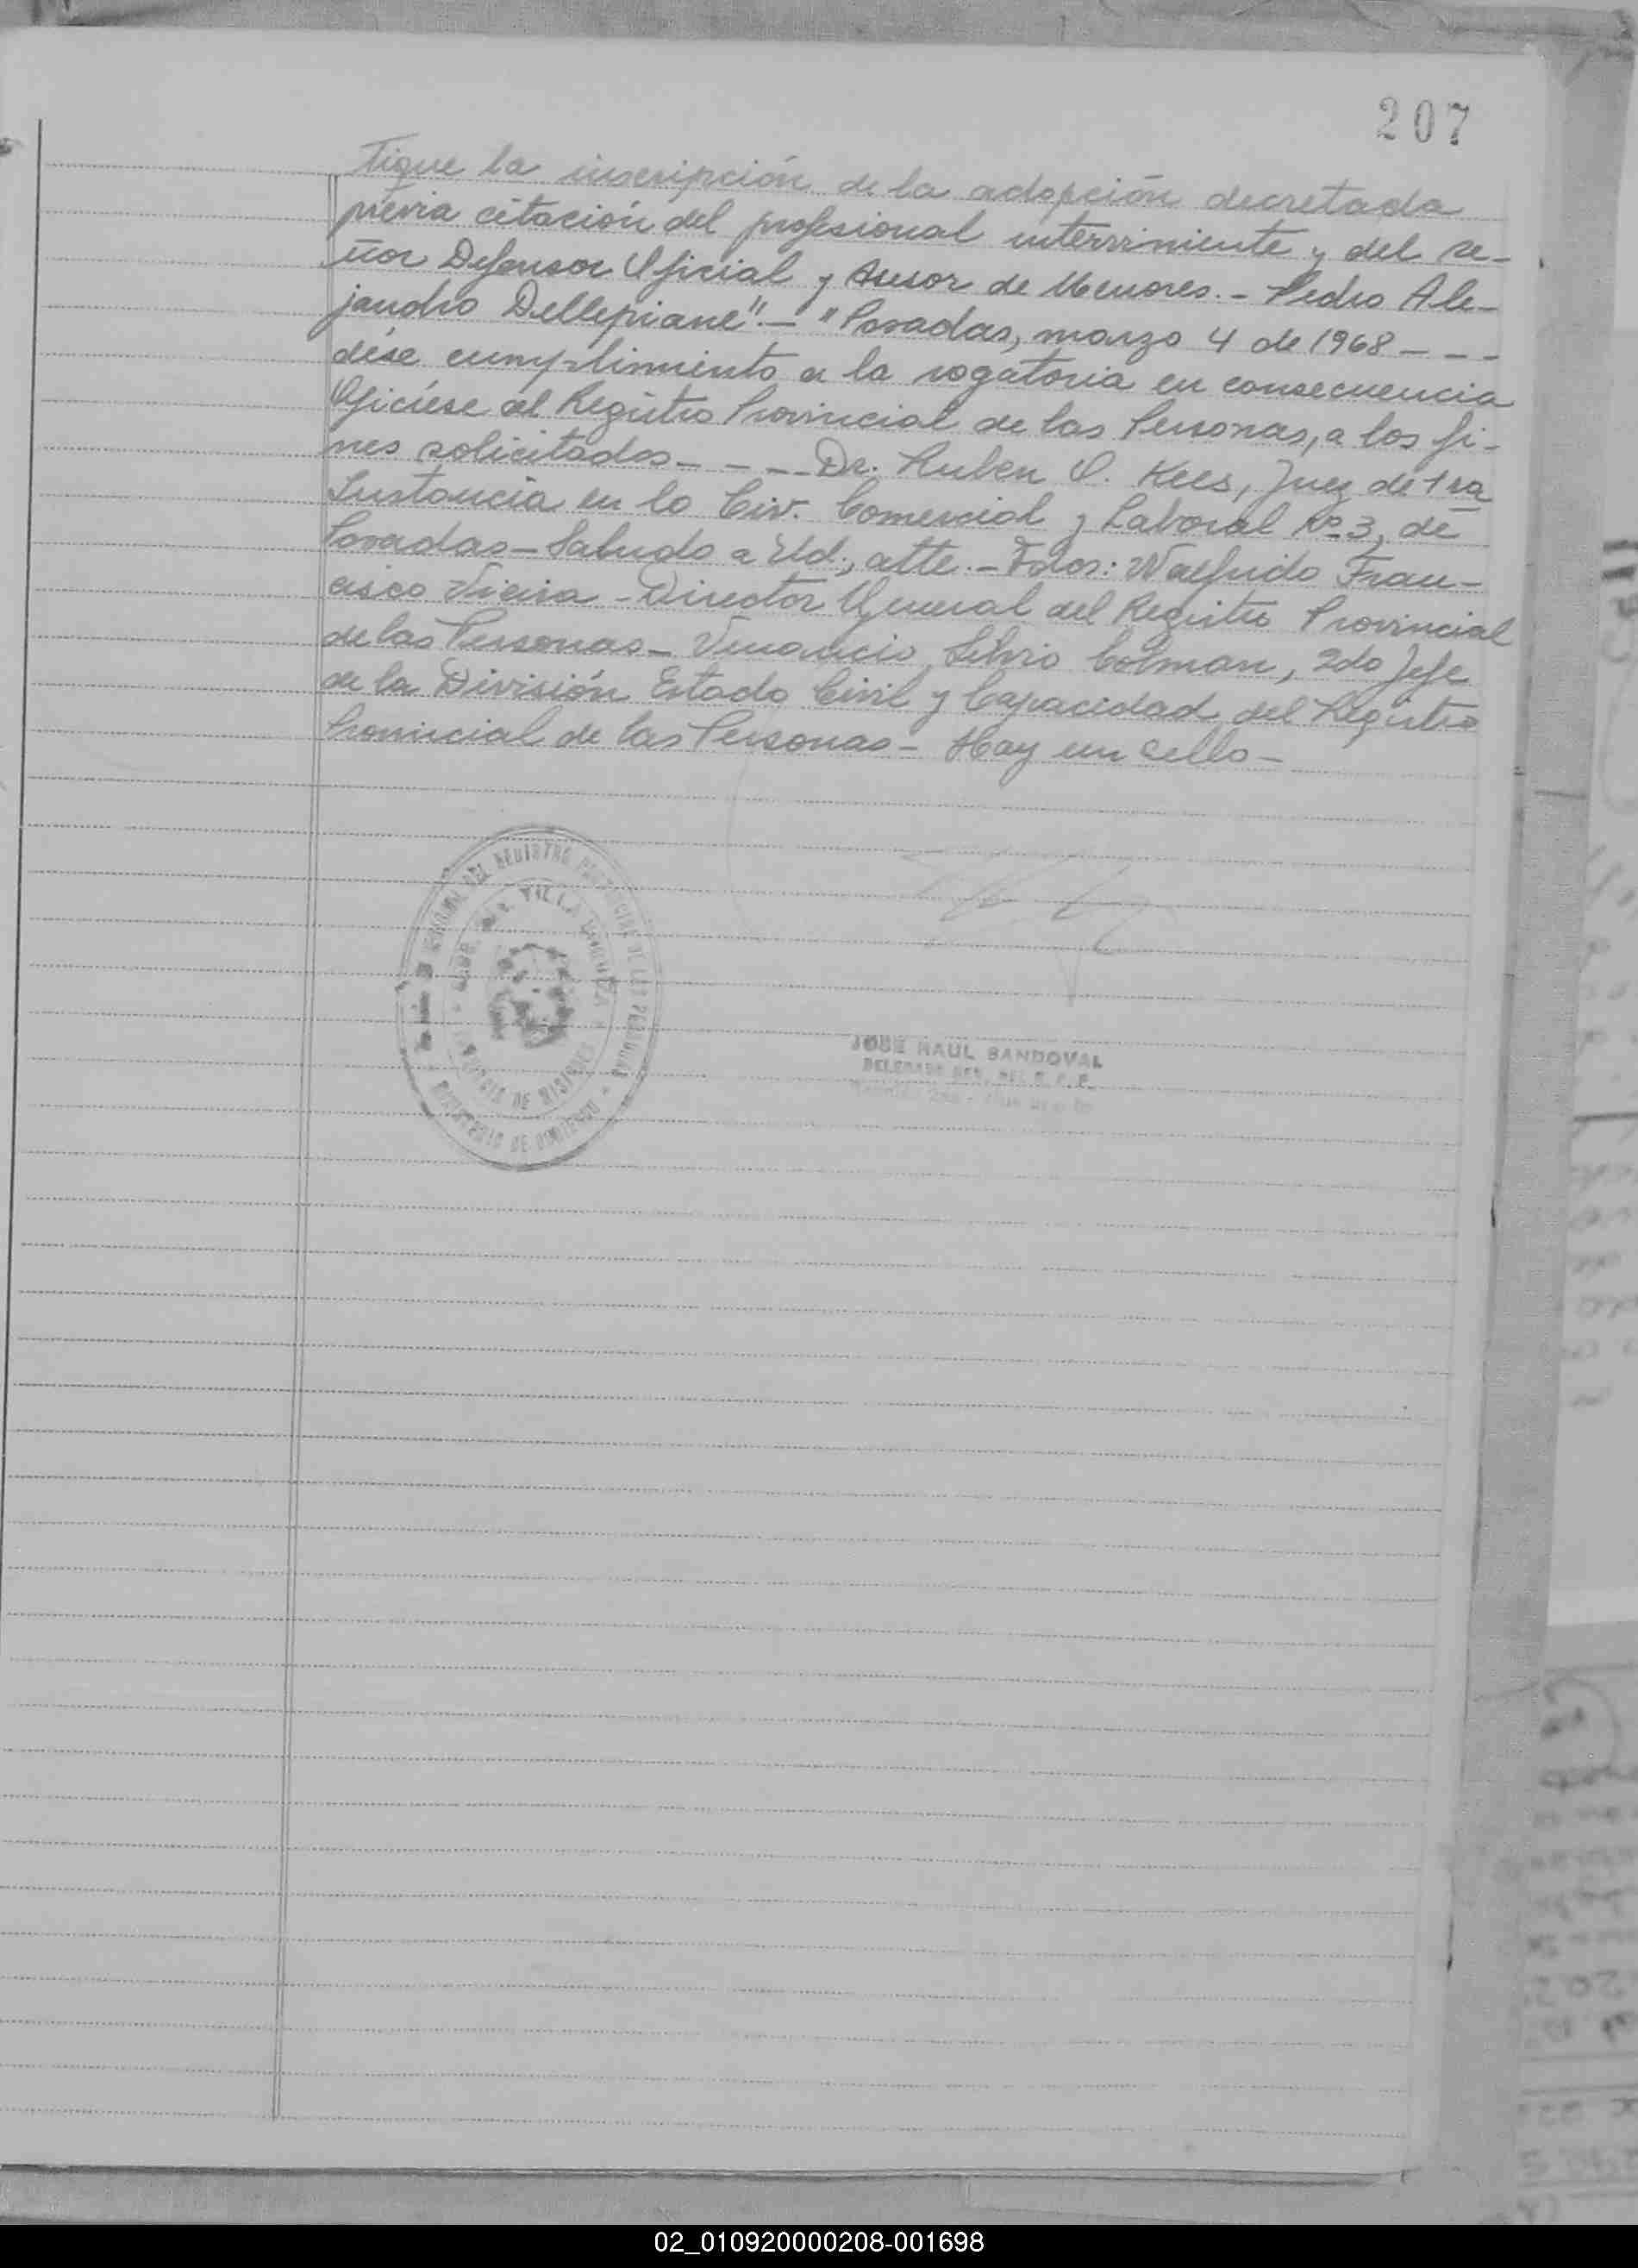 207
tique la inscripción de la adopción decretada
previa citación del profesional interviniente y del se-
ñor Defensor Oficial y Asesor de Menores.- Pedro Ale-
jandro Dellepiane".- "Posadas, marzo 4 de 1968 - - -
dése cumplimiento a la rogatoria en consecuencia
Ofíciese al Registro Provincial de las Personas, a los fi-
nes solicitados - - - - Dr. Ruben O. Kees, Juez de 1ra
Instancia en lo Civ. Comercial y Laboral Nº 3, de
Posadas - Saludo a Ud., atte. - Fdos: Walfrido Fran-
cisco Vieira - Director General del Registro Provincial
de las Personas - Venancio Silvio Colman, 2do Jefe
de la División Estado Civil y Capacidad del Registro
Provincial de las Personas - Hay un sello -
DEL REGISTRO PROVINCIAL DE LAS PERSONAS
VILLA URQUIZA
PROVINCIA DE MISIONES
MINISTERIO DE GOBIERNO
JOSE RAUL SANDOVAL
02_010920000208-001698